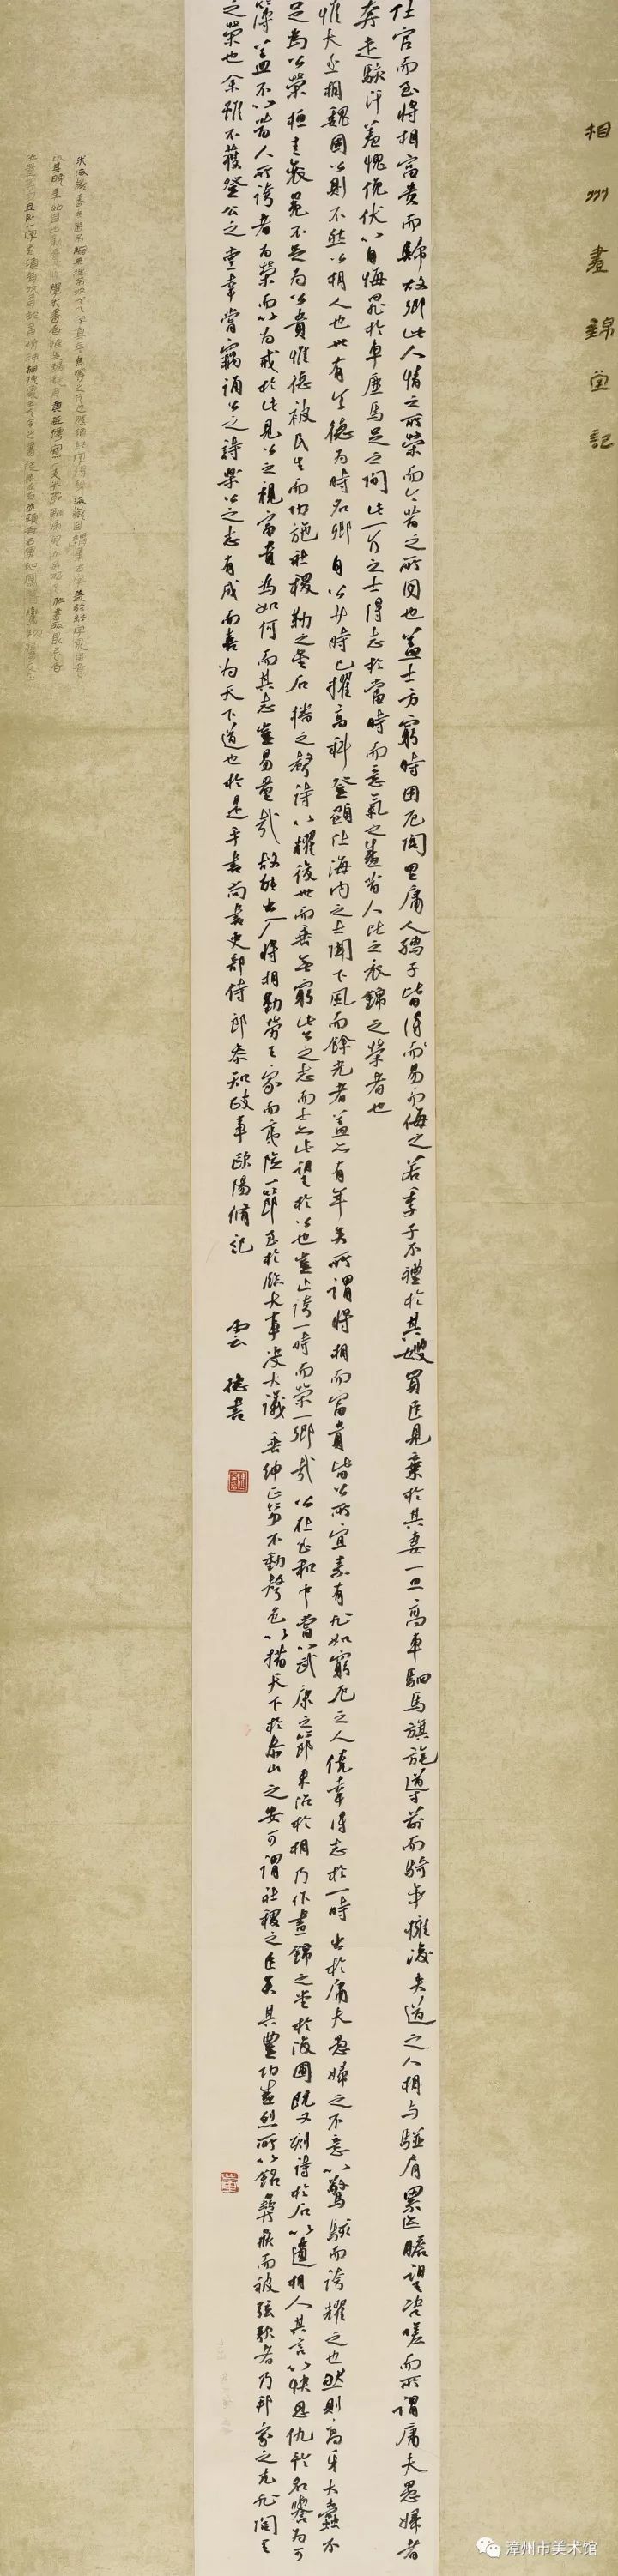 相州晝錦堂記
仕宦而至將相富貴而歸故鄉此人情之所榮而今昔之所同也蓋士方窮時困厄閭里庸人孺子皆得而易而侮之若季子不禮於其嫂買臣見棄於其妻一旦高車駟馬旗旄導前而騎卒擁後夾道之人相與駢肩累迹瞻望咨嗟而所謂庸夫愚婦者
奔走駭汗羞愧俛伏以自悔罪於車塵馬足之間此一介之士得志於當時而意氣之盛昔人比之衣錦之榮者也
惟大丞相魏國公則不然公相人也世有令德為時名卿自公少時已擢高科登顯仕海內之士聞下風而餘光者蓋亦有年矣所謂將相而富貴皆公所宜素有非如窮厄之人僥幸得志於一時出於庸夫愚婦之不意以驚駭而誇耀之也然則高牙大纛不
足為公榮桓圭袞冕不足為公貴惟德被民生而功施社稷勒之金石播之聲詩以耀後世而垂無窮此公之志而士亦此望於公也豈止誇一時而榮一鄉哉公在至和中嘗以武康之節來治於相乃作晝錦之堂於後圃既又刻詩於石以遺相人其言以快恩仇矜名譽為可
薄蓋不以昔人所誇者為榮而以為戒於此見公之視富貴為如何而其志豈易量哉故能出入將相勤勞王家而夷險一節至於臨大事決大議垂紳正笏不動聲色以措天下於泰山之安可謂社稷之臣矣其豐功盛烈所以銘彝鼎而被弦歌者乃邦家之光非閭里
之榮也余雖不獲登公之堂幸嘗竊誦公之詩樂公之志有成而喜為天下道也於是乎書尚書吏部侍郎參知政事歐陽脩記 雲德書
漳州市美术馆